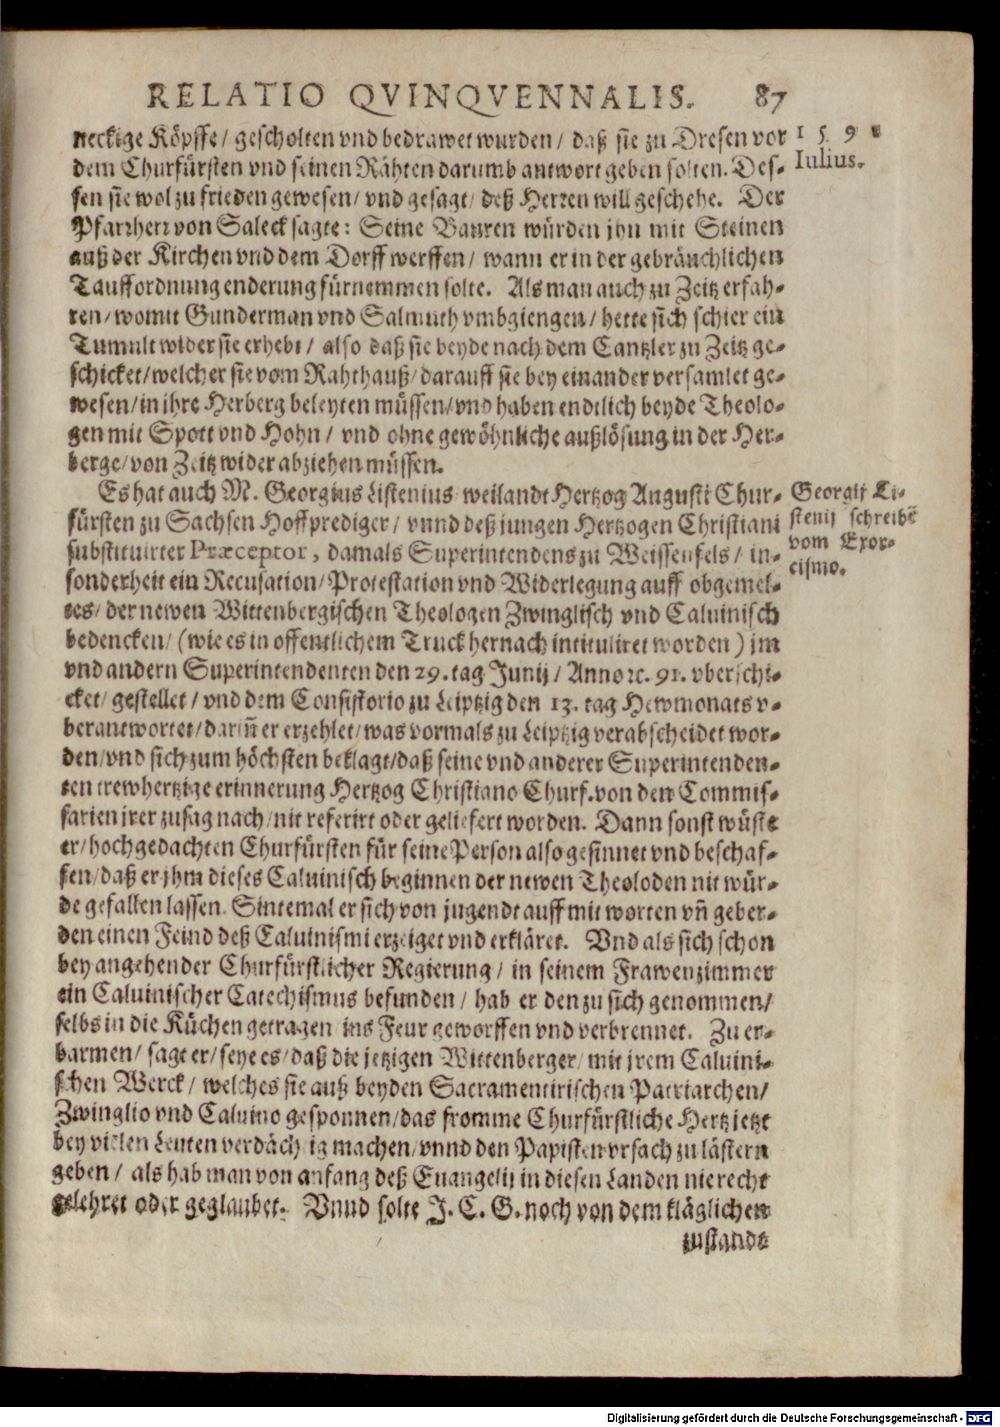 RELATIO QVINQVENNALIS. 87
neckige Köpffe/ gescholten vnd bedrawet wurden/ daß sie zu Dresen vor
1 5 9 1
Iulius.
dem Churfürsten vnd seinen Rähten darumb antwort geben solten. Des-
sen sie wol zu frieden gewesen/ vnd gesagt/ deß Herren will geschehe. Der
Pfarrherr von Saleck sagte: Seine Bauren würden jhn mit Steinen
auß der Kirchen vnd dem Dorff werffen/ wann er in der gebräuchlichen
Tauffordnung enderung fürnemmen solte. Als man auch zu Zeitz erfah-
ren/ womit Gunderman vnd Salmuth vmbgiengen/ hette sich schier ein
Tumult wider sie erhebt/ also daß sie beyde nach dem Cantzler zu Zeitz ge-
schicket/ welcher sie vom Rahthauß/ darauff sie bey einander versamlet ge-
wesen/ in ihre Herberg beleyten müssen/ vnd haben endtlich beyde Theolo-
gen mit Spott vnd Hohn/ vnd ohne gewöhnliche außlösung in der Her-
berge/ von Zeitz wider abziehen müssen.
Es hat auch M. Georgius Listenius weilandt Hertzog Augusti Chur-
Georgij Li-
stenij schreibē
vom Exor-
cismo.
fürsten zu Sachsen Hoffprediger/ vnnd deß jungen Hertzogen Christiani
substituirter Præceptor, damals Superintendens zu Weissenfels/ in-
sonderheit ein Recusation/ Protestation vnd Widerlegung auff obgemel-
tes/ der newen Wittenbergischen Theologen Zwinglisch vnd Caluinisch
bedencken/ (wie es in offentlichem Truck hernach intituliret worden) jm
vnd andern Superintendenten den 29. tag Junij/ Anno ꝛc. 91. vberschi-
cket/ gestellet/ vnd dem Consistorio zu Leiptzig den 13. tag Hewmonats v-
berantwortet/ dariñ er erzehlet/ was vormals zu Leiptzig verabscheidet wor-
den/ vnd sich zum höchsten beklagt/ daß seine vnd anderer Superintenden-
ten trewhertzige erinnerung Hertzog Christiano Churf. von den Commis-
sarien jrer zusag nach/ nit referirt oder geliefert worden. Dann sonst wüste
er/ hochgedachten Churfürsten für seine Person also gesinnet vnd beschaf-
fen/ daß er jhm dieses Caluinisch beginnen der newen Theoloden nit wür-
de gefallen lassen. Sintemal er sich von jugendt auff mit worten vñ geber-
den einen Feind deß Caluinismi erzeiget vnd erkläret. Vnd als sich schon
bey angehender Churfürstlicher Regierung/ in seinem Frawenzimmer
ein Caluinischer Catechismus befunden/ hab er den zu sich genommen/
selbs in die Küchen getragen/ ins Feur geworffen vnd verbrennet. Zu er-
barmen/ sagt er/ seye es/ daß die jetzigen Wittenberger/ mit jrem Caluini-
schen Werck/ welches sie auß beyden Sacramentirischen Patriarchen/
Zwinglio vnd Caluino gesponnen/ das fromme Churfürstliche Hertz jetzt
bey vielen Leuten verdächtig machen/ vnnd den Papisten vrsach zu lästern
geben/ als hab man von anfang deß Euangelij in diesen Landen nie recht
gelehret oder geglaubet. Vnnd solte J. C. G. noch von dem kläglichen
zustande
Digitalisierung gefördert durch die Deutsche Forschungsgemeinschaft - DFG